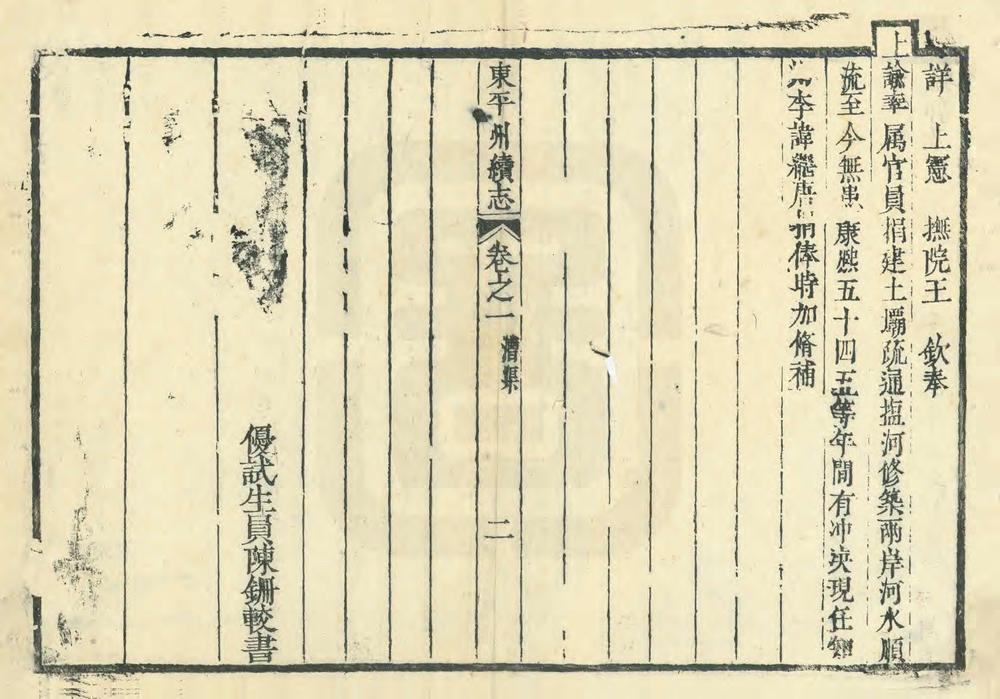 詳　上憲　撫院王　欽奉
上諭率属官員捐建土壩疏通塩河修築兩岸河水順
流至今無患康熙五十四五等年間有冲决現任知
州李諱繼唐捐俸時加脩補
東平州續志　卷之一　漕渠　二
優試生員陳鉶較書